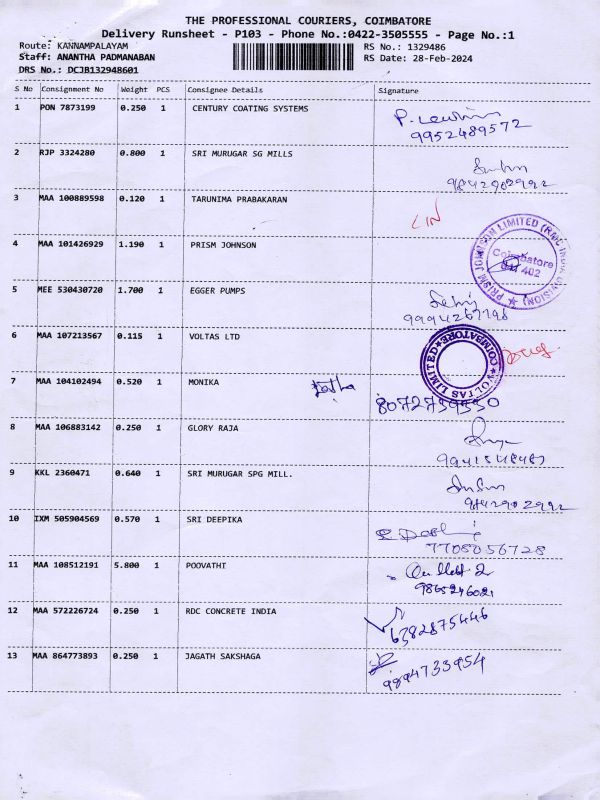 THE PROFESSIONAL COURIERS, COIMBATORE
Delivery Runsheet - P103 - Phone No.:0422-3505555 - Page No.:1
Route: KANNAMPALAYAM RS No.: 1329486
Staff: ANANTHA PADMANABAN RS Date: 28-Feb-2024
DRS No.: DCJB132948601
S No Consignment No Weight PCS Consignee Details Signature
1 PON 7873199 0.250 1 CENTURY COATING SYSTEMS
9952489572
2 RJP 3324280 0.800 1 SRI MURUGAR SG MILLS
9842902992
3 MAA 100889598 0.120 1 TARUNIMA PRABAKARAN
4 MAA 101426929 1.190 1 PRISM JOHNSON
PRISM JOHNSON LIMITED (RMC-INDIA DIVISION)
Coimbatore
641 402
5 MEE 530430720 1.700 1 EGGER PUMPS
9994267198
6 MAA 107213567 0.115 1 VOLTAS LTD
VOLTAS LIMITED COIMBATORE
7 MAA 104102494 0.520 1 MONIKA
8072739530
8 MAA 106883142 0.250 1 GLORY RAJA
9 KKL 2360471 0.640 1 SRI MURUGAR SPG MILL.
9842902992
10 IXM 505904569 0.570 1 SRI DEEPIKA
7708056728
11 MAA 108512191 5.800 1 POOVATHI
9865246021
12 MAA 572226724 0.250 1 RDC CONCRETE INDIA
6382875446
13 MAA 864773893 0.250 1 JAGATH SAKSHAGA
9894733954